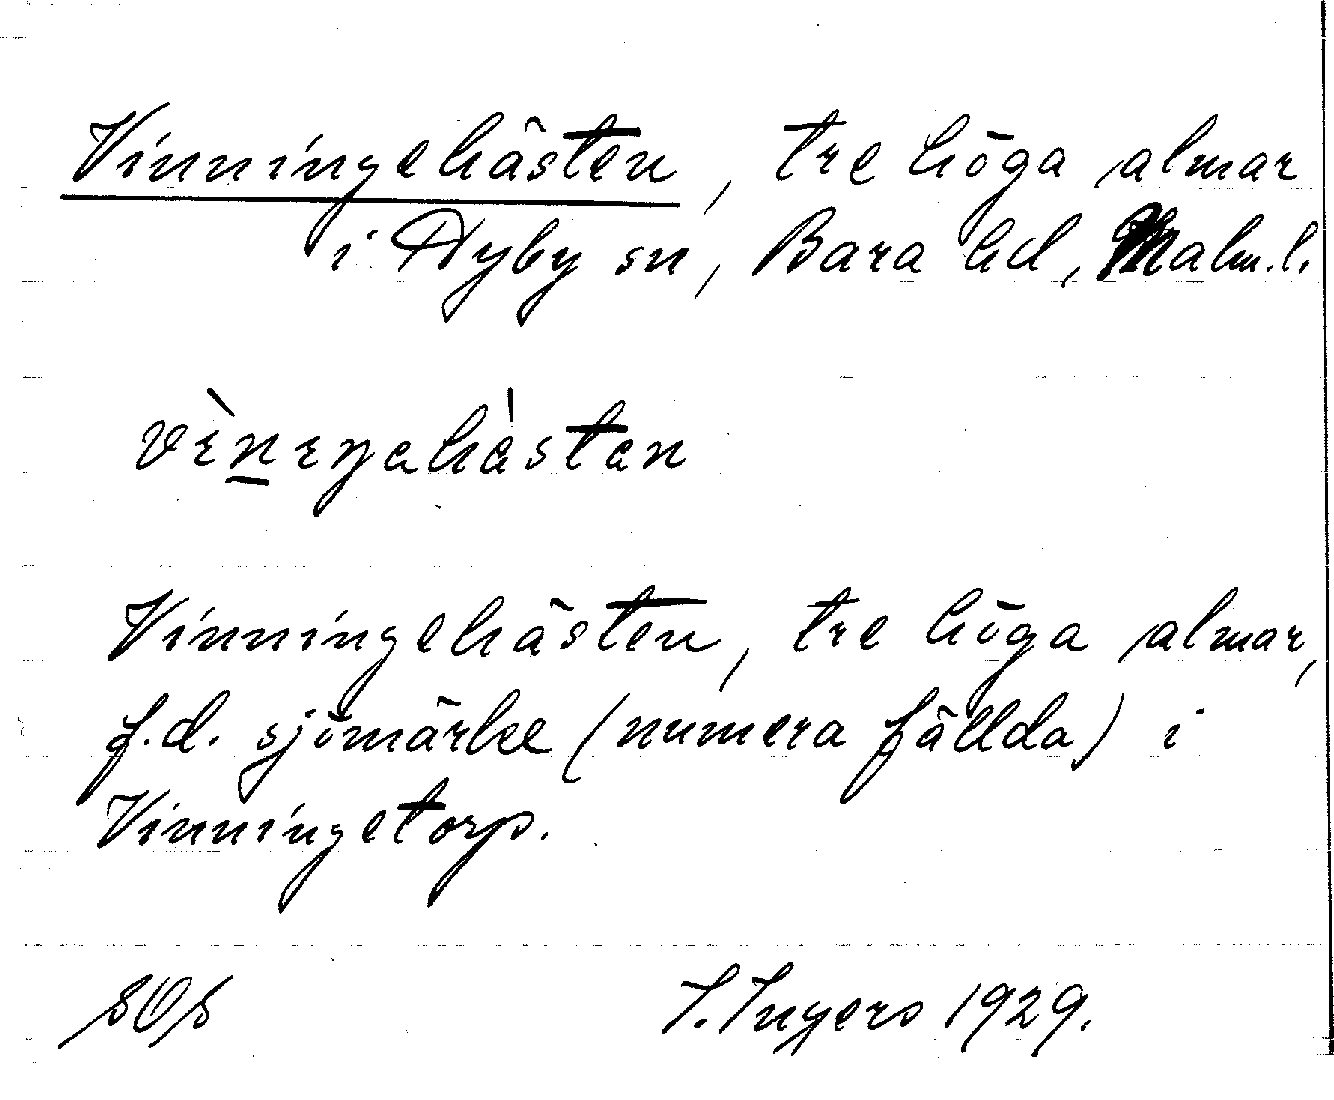 Vinningehästen, tre höga almar
i Hyby sn, Bara hd, Malm.l.
vìnıŋahàstan
Vinningehästen, tre höga almar,
f.d. sjömärke (numera fällda) i
Vinningetorp.
I. Ingers 1929.